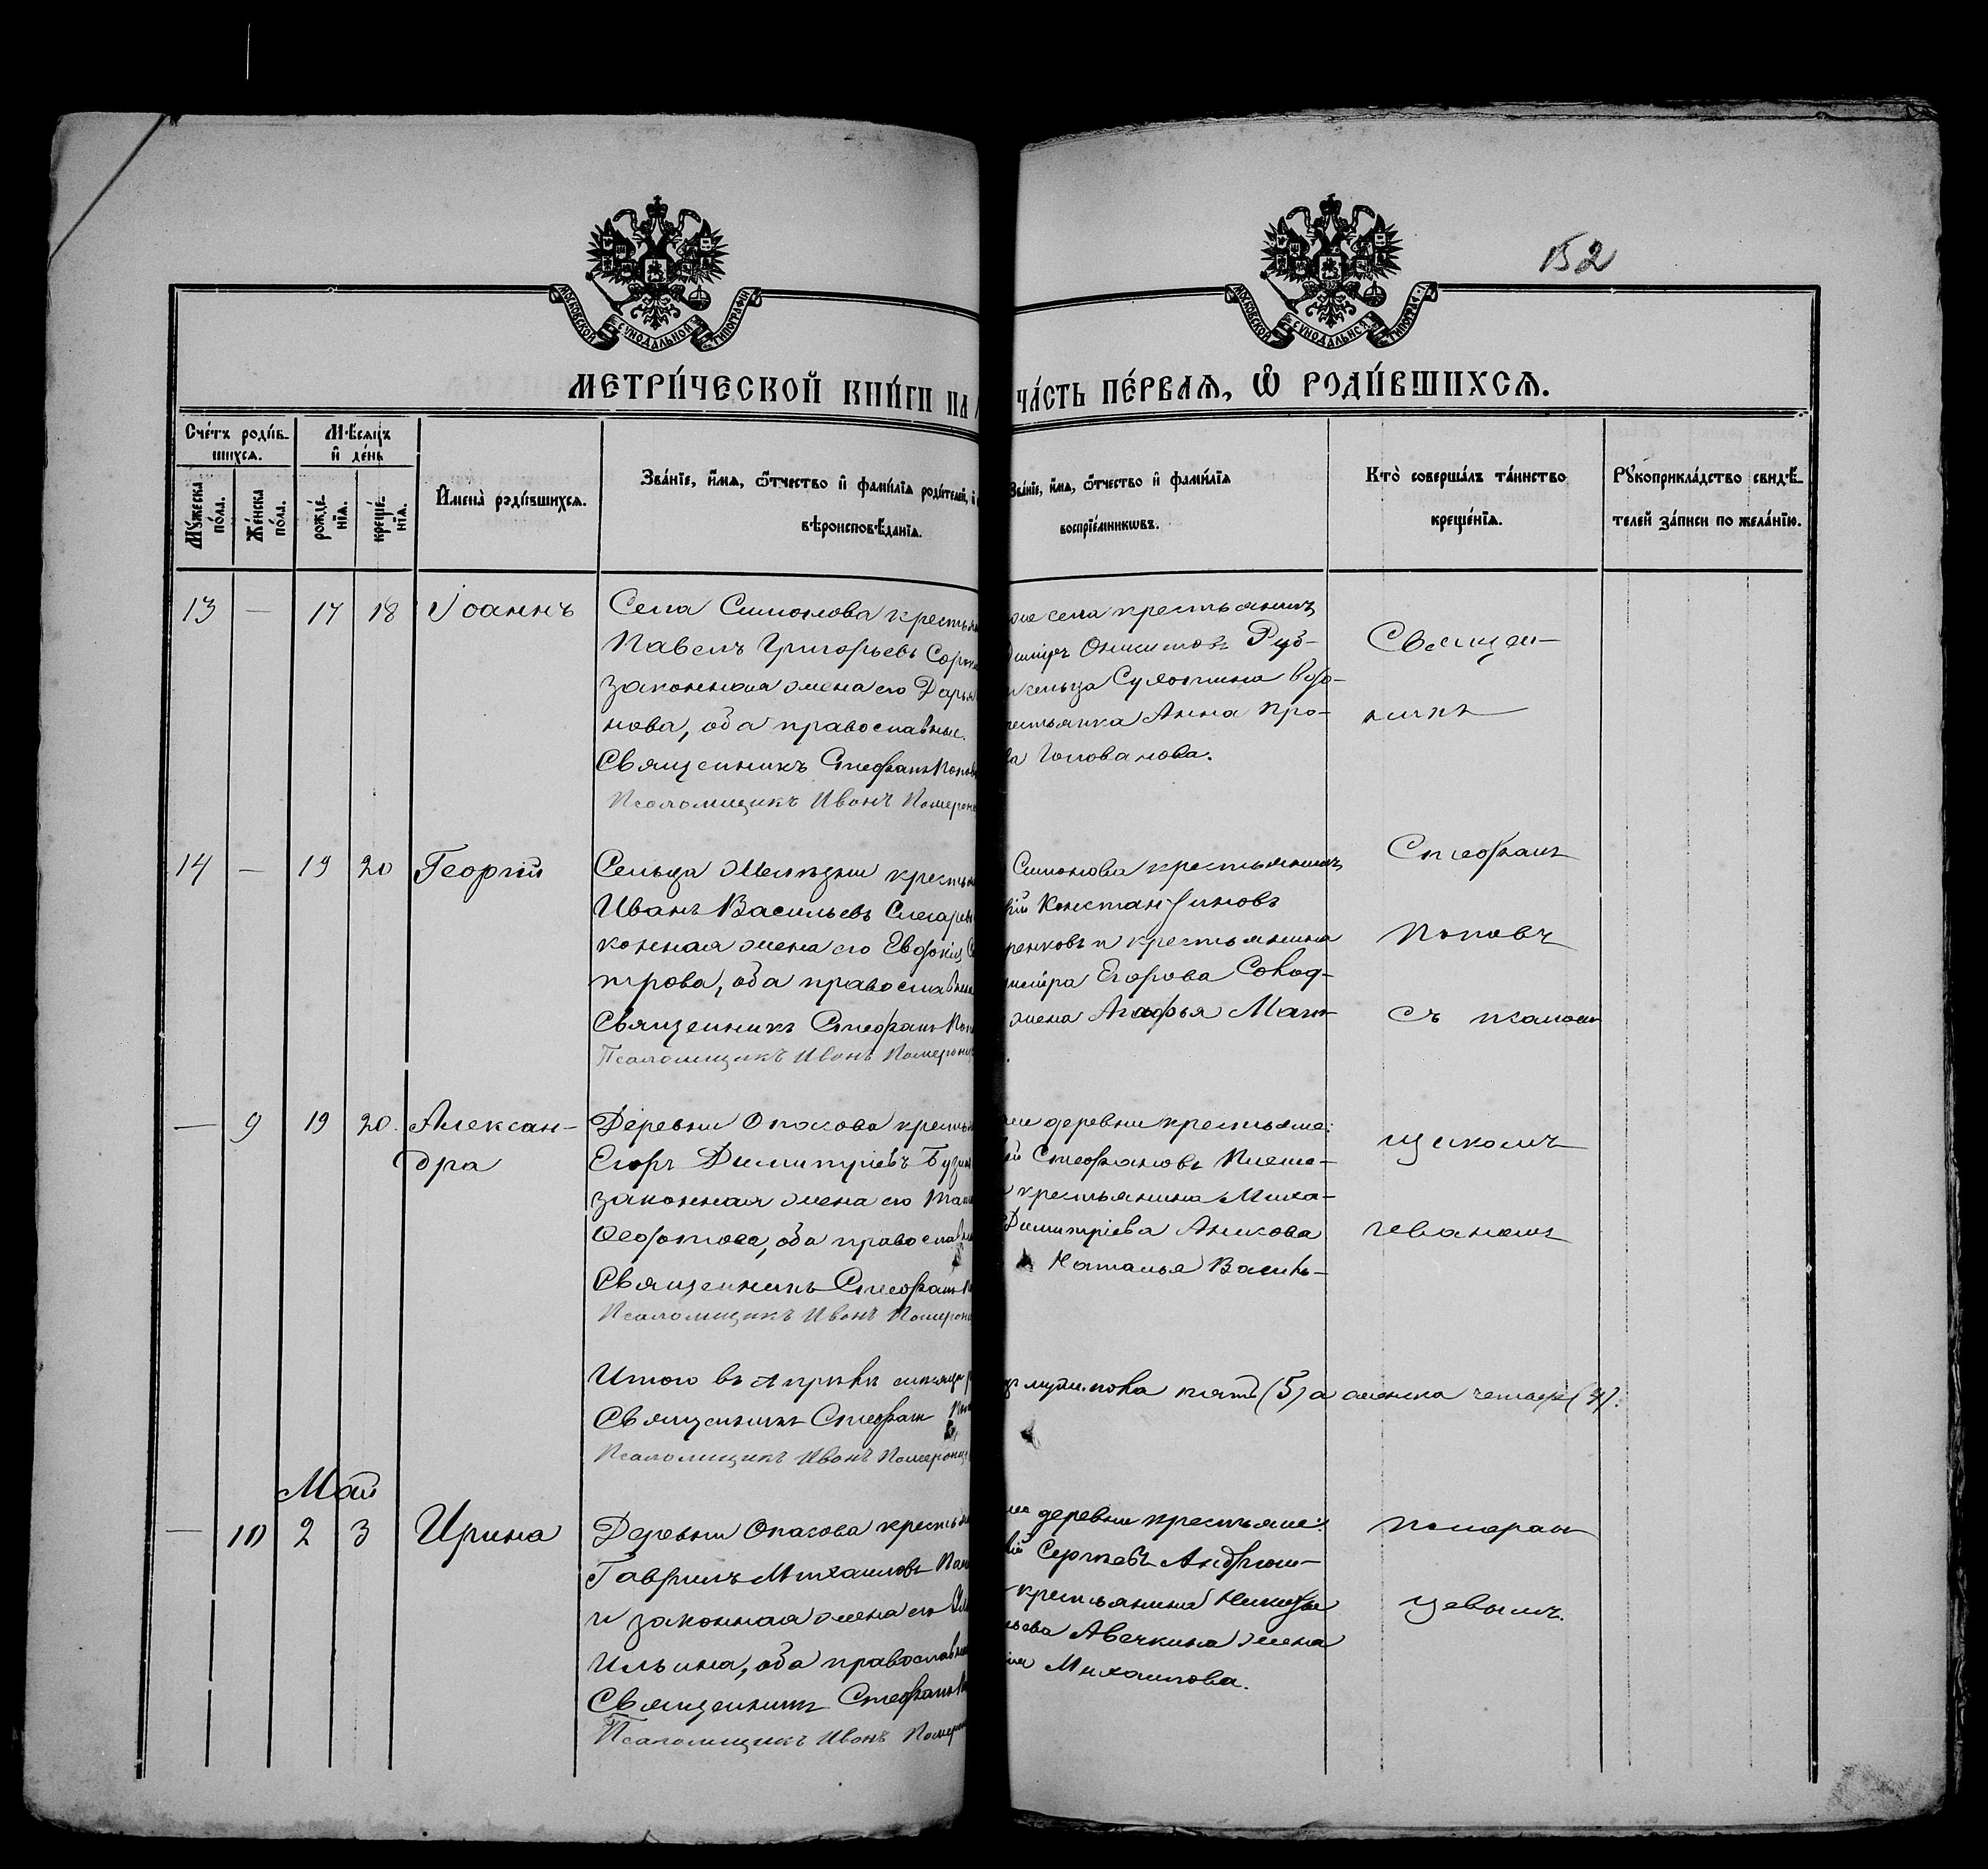 152
МОСКОВСКОЙ СУНОДАЛЬНОЙ ТИПОГРАФІИ
МОСКОВСКОЙ СУНОДАЛЬНОЙ ТИПОГРАФІИ
МЕТРИ́ЧЕСКОЙ КНИ́ГИ НА
ЧА́СТЬ ПЕ́РВАЯ, Ѽ РОДИ́ВШИХСЯ.
Сче́тъ роди́в-
шихся.
Мѣсяцъ
и҆ де́нь
Му́жеска по́ла.
Же́нска по́ла.
рожде́нїя.
креще́нїя.
И҆мена̀ роди́вшихся.
Зва́нїе, и҆́мя, ѻ҆́тчество и҆ фами́лїя роди́телей, и҆
вѣроисповѣ́данїя.
Зва́нїе, и҆́мя, ѻ҆́тчество и҆ фами́лїя
воспрїе́мниковъ.
Кто̀ соверша́лъ та́инство
креще́нїя.
Рꙋкоприкла́дство свидѣ́-
телей за́писи по жела́нїю.
13 — 17 18 Іоаннъ
Села Симонова крестья
Павелъ Григорьевъ
законная жена его Дарья
нова, оба православные.
Священникъ Стефанъ Попов
Псаломщикъ Иванъ Померан
села крестьянинъ
Руб-
сельца
крестьянка Анна Про-
Голованова.
Священ-
никъ
14 — 19 20 Георгій
Сельца крестья
Иванъ Васильевъ
конная жена его Евдокія
трова, оба православные
Священникъ Стефанъ Поп
Псаломщикъ Иванъ Померанц
Симонова крестьянинъ
Константиновъ
ренковъ и крестьянина
Егорова
жена Агафья Мат-
Стефанъ
Поповъ
съ псалом
— 9 19 20 Алексан-
дра
Деревни Опакова крестья
Егоръ Димитріевъ
законная жена его
Ѳедотова, оба православ
Священникъ Стефанъ
Псаломщикъ Иванъ Померан
деревни крестьян:
Стефановъ
крестьянина Миха-
Димитріева Аникова
Наталья Василь-
щикомъ
Иваномъ
Итого въ апрѣлѣ мѣсяцѣ
Священникъ Стефанъ
Псаломщикъ Иванъ Померанц
пять (5) а женска четыре (4).
Май
— 10 2 3 Ирина
Деревни Опакова крестья
Гавріилъ Михаиловъ
и законная жена его
Ильина, оба православн
Священникъ Стефанъ
Псаломщикъ Иванъ Помер
деревни крестьян:
Сергѣевъ Андрюш-
крестьянина Никиты
Авечкина жена
Михаилова.
Померан
цевымъ.